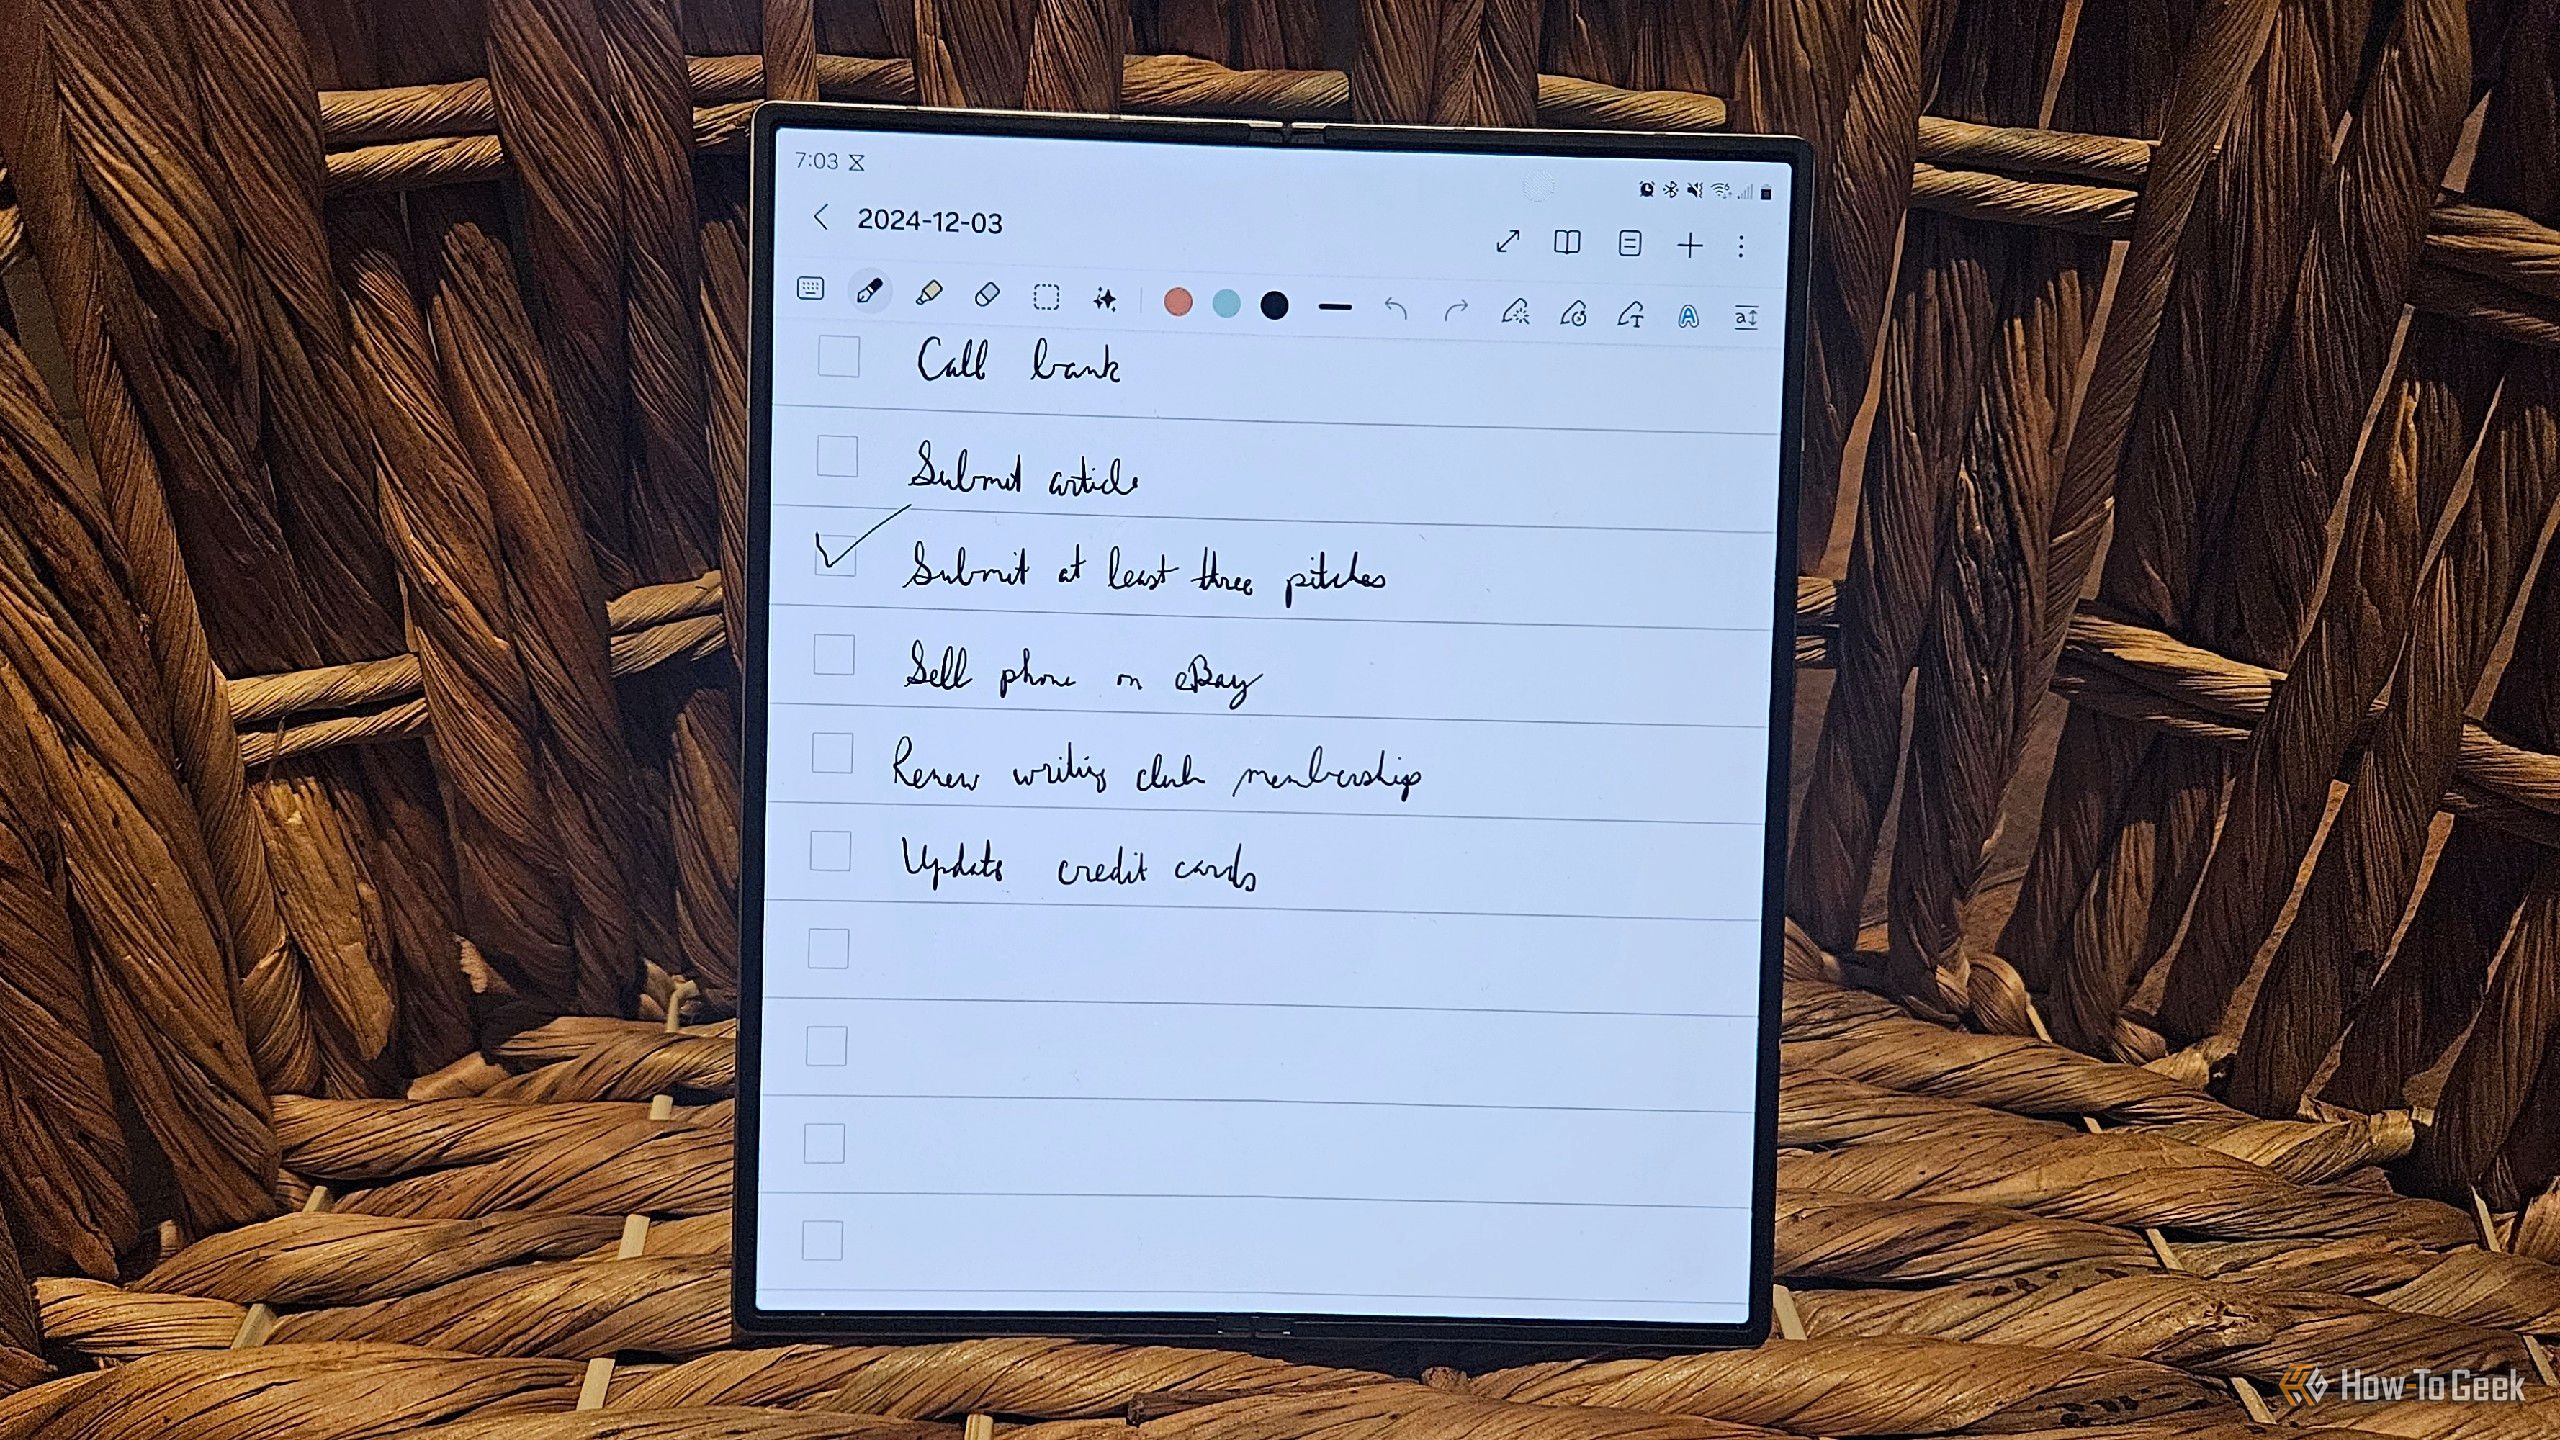 7:03
2024-12-03
Call bank
Submit article
Submit at least three pitches
Sell phone on eBay
Renew writing club membership
Update credit cards
How-To Geek